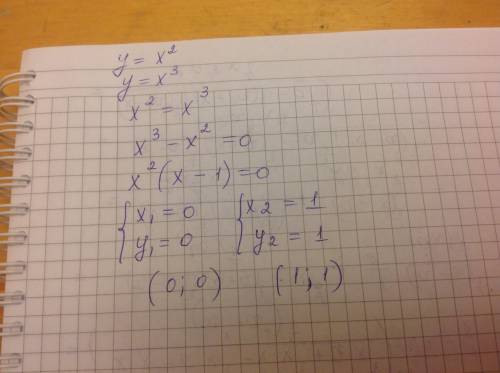 y = x²
y = x³
x² = x³
x³ - x² = 0
x²(x - 1) = 0
{ x₁ = 0 { x₂ = 1
{ y₁ = 0 { y₂ = 1
(0; 0) (1; 1)